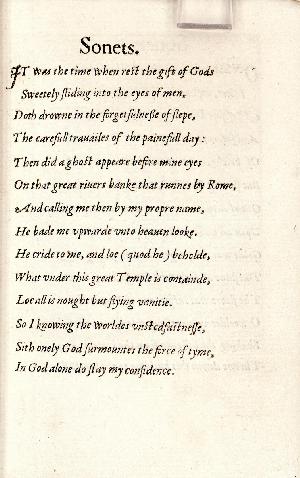 Sonets.
IT was the time when rest the gift of Gods
Sweetely sliding into the eyes of men,
Doth drowne in the forgetfulnesse of slepe,
The carefull trauailes of the painefull day:
Then did a ghost appeare before mine eyes
On that great riuers banke that runnes by Rome,
And calling me then by my propre name,
He bade me vpwarde vnto heauen looke.
He cride to me, and loe (quod he) beholde,
What vnder this great Temple is containde,
Loe all is nought but flying vanitie.
So I knowing the worldes vnstedfastnesse,
Sith onely God surmountes the force of tyme,
In God alone do stay my confidence.